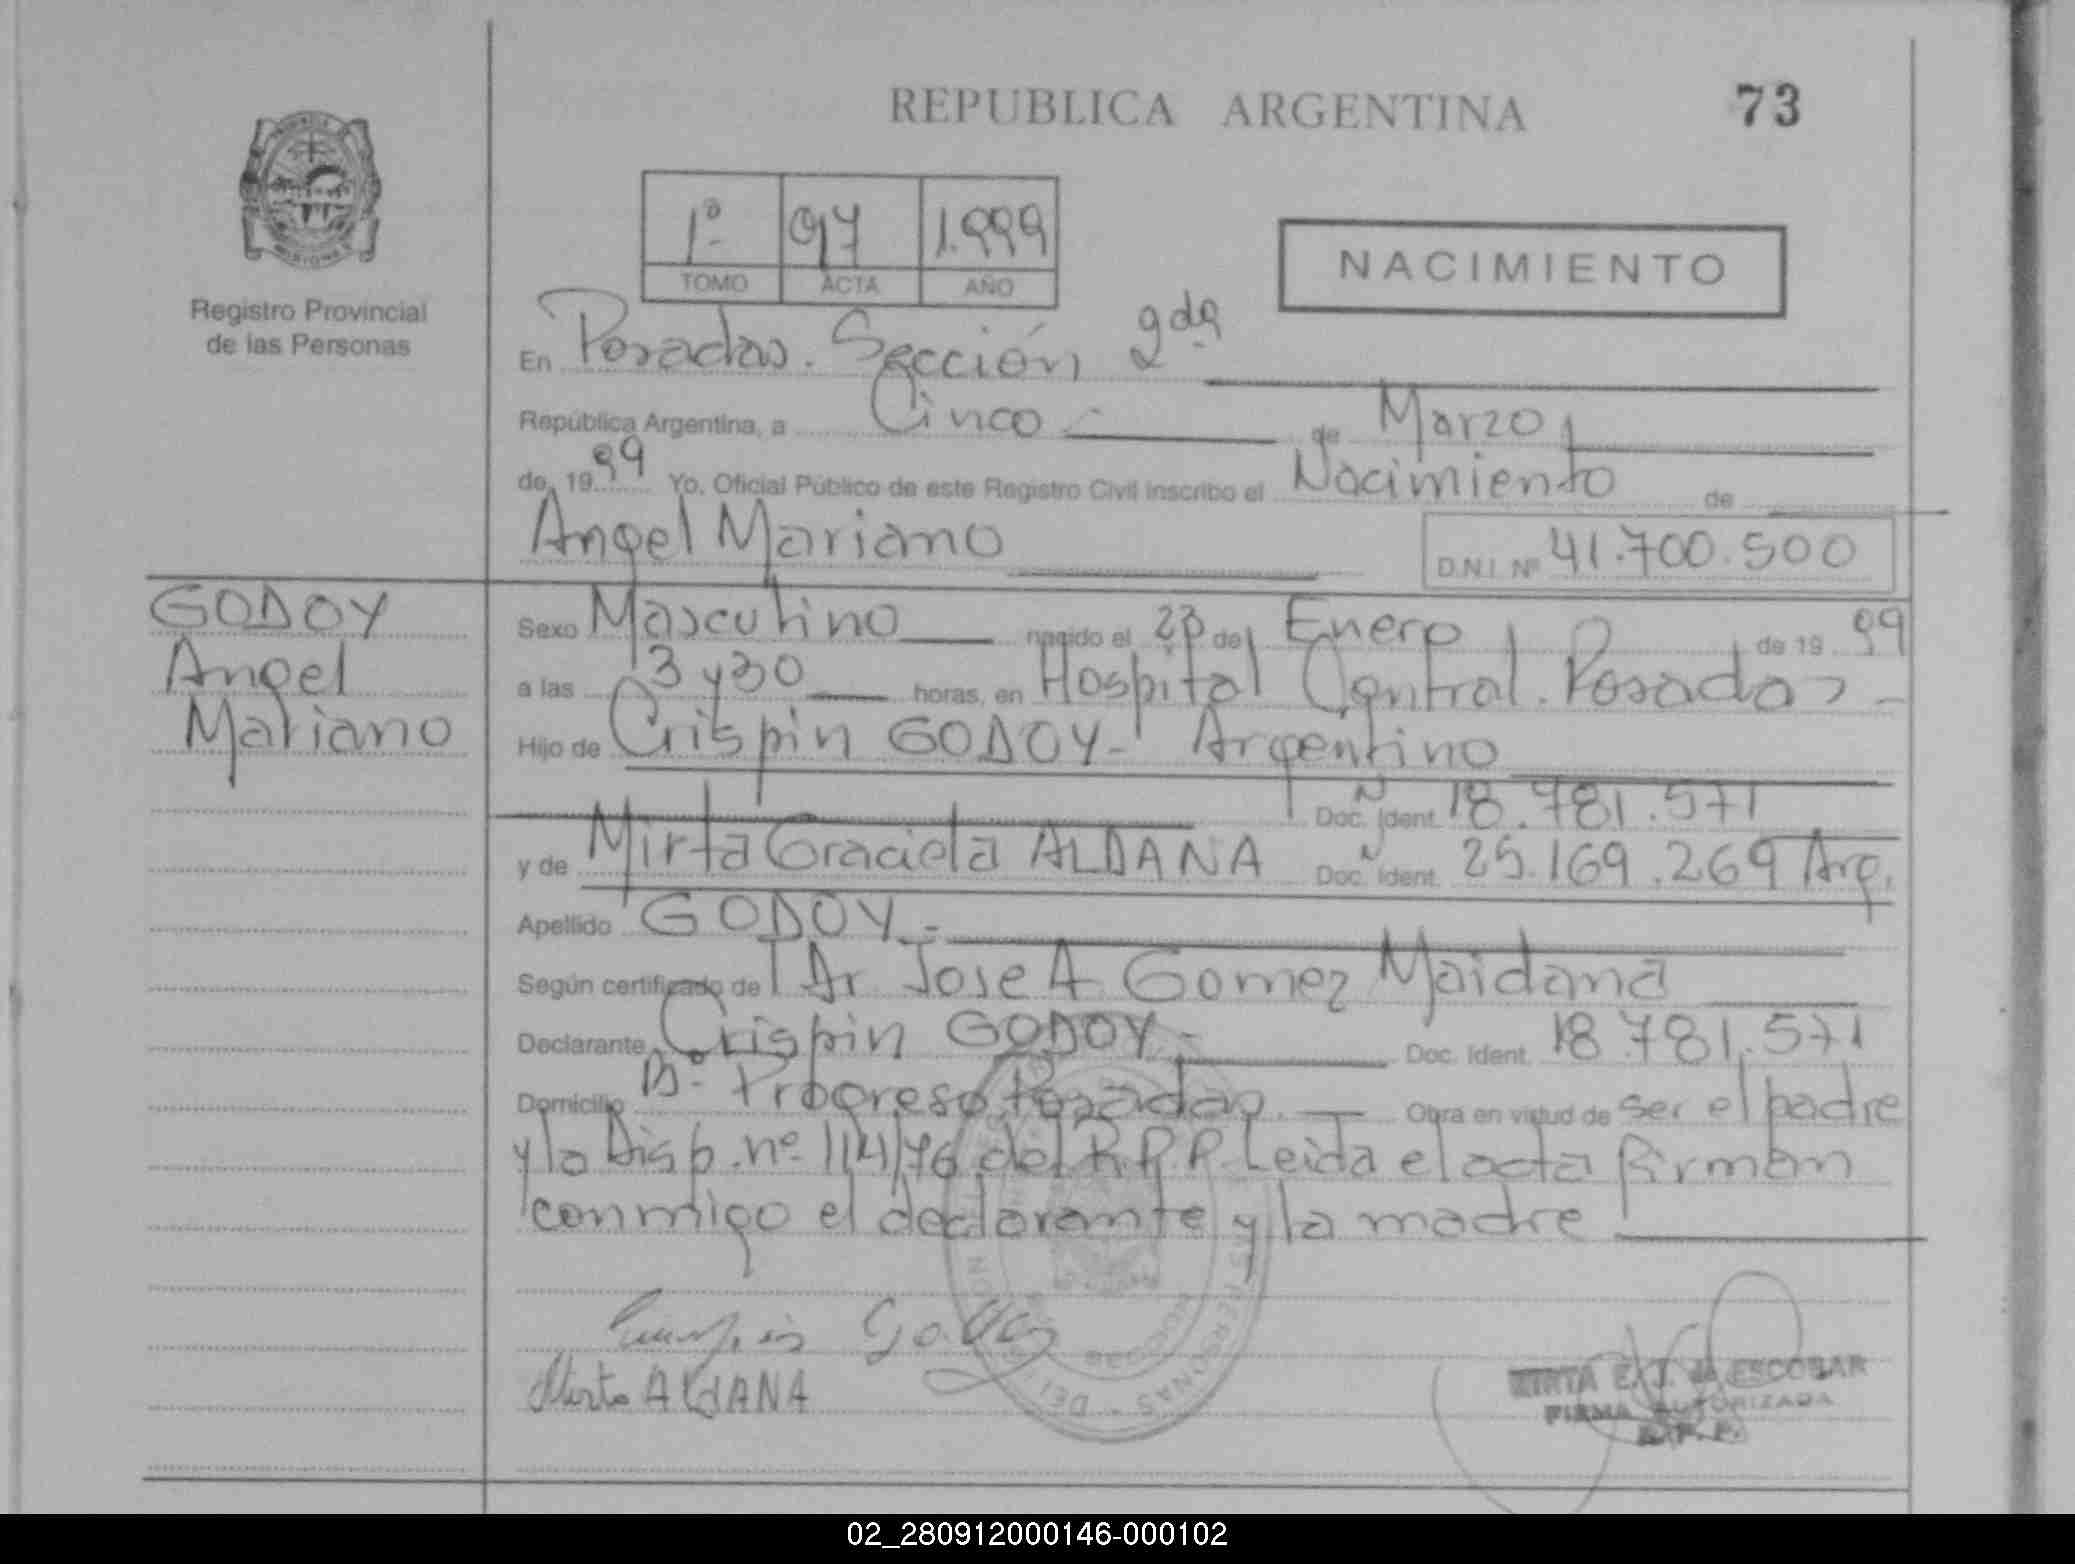 REPUBLICA ARGENTINA
73
Registro Provincial
de las Personas
1º
97
1.999
TOMO
ACTA
AÑO
NACIMIENTO
En Posadas. Sección 2da
República Argentina, a Cinco de Marzo
de 1999 Yo, Oficial Público de este Registro Civil Inscribo el Nacimiento de
Angel Mariano
D.N.I. Nº 41.700.500
GODOY
Angel
Mariano
Sexo Masculino nacido el de Enero de 1999
a las 3 y 30 horas, en Hospital Central. Posadas -
Hijo de Crispin GODOY - Argentino
Doc. Ident. 18.781.571
y de Mirta Graciela ALDANA Doc. Ident. 25.169.269 Arg.
Apellido GODOY.-
Según certificado de Dr Jose A Gomez Maidana
Declarante Crispin GODOY.- Doc. Ident. 18.781.571
Domicilio Bº Progreso Posadas. Obra en virtud de ser el padre
y la Disp. nº 114/76 del R.P.P. Leida el acta firman
conmigo el declarante y la madre
Mirta ALDANA
MIRTA E. J. de ESCOBAR
FIRMA AUTORIZADA
R.P.P.
02_280912000146-000102